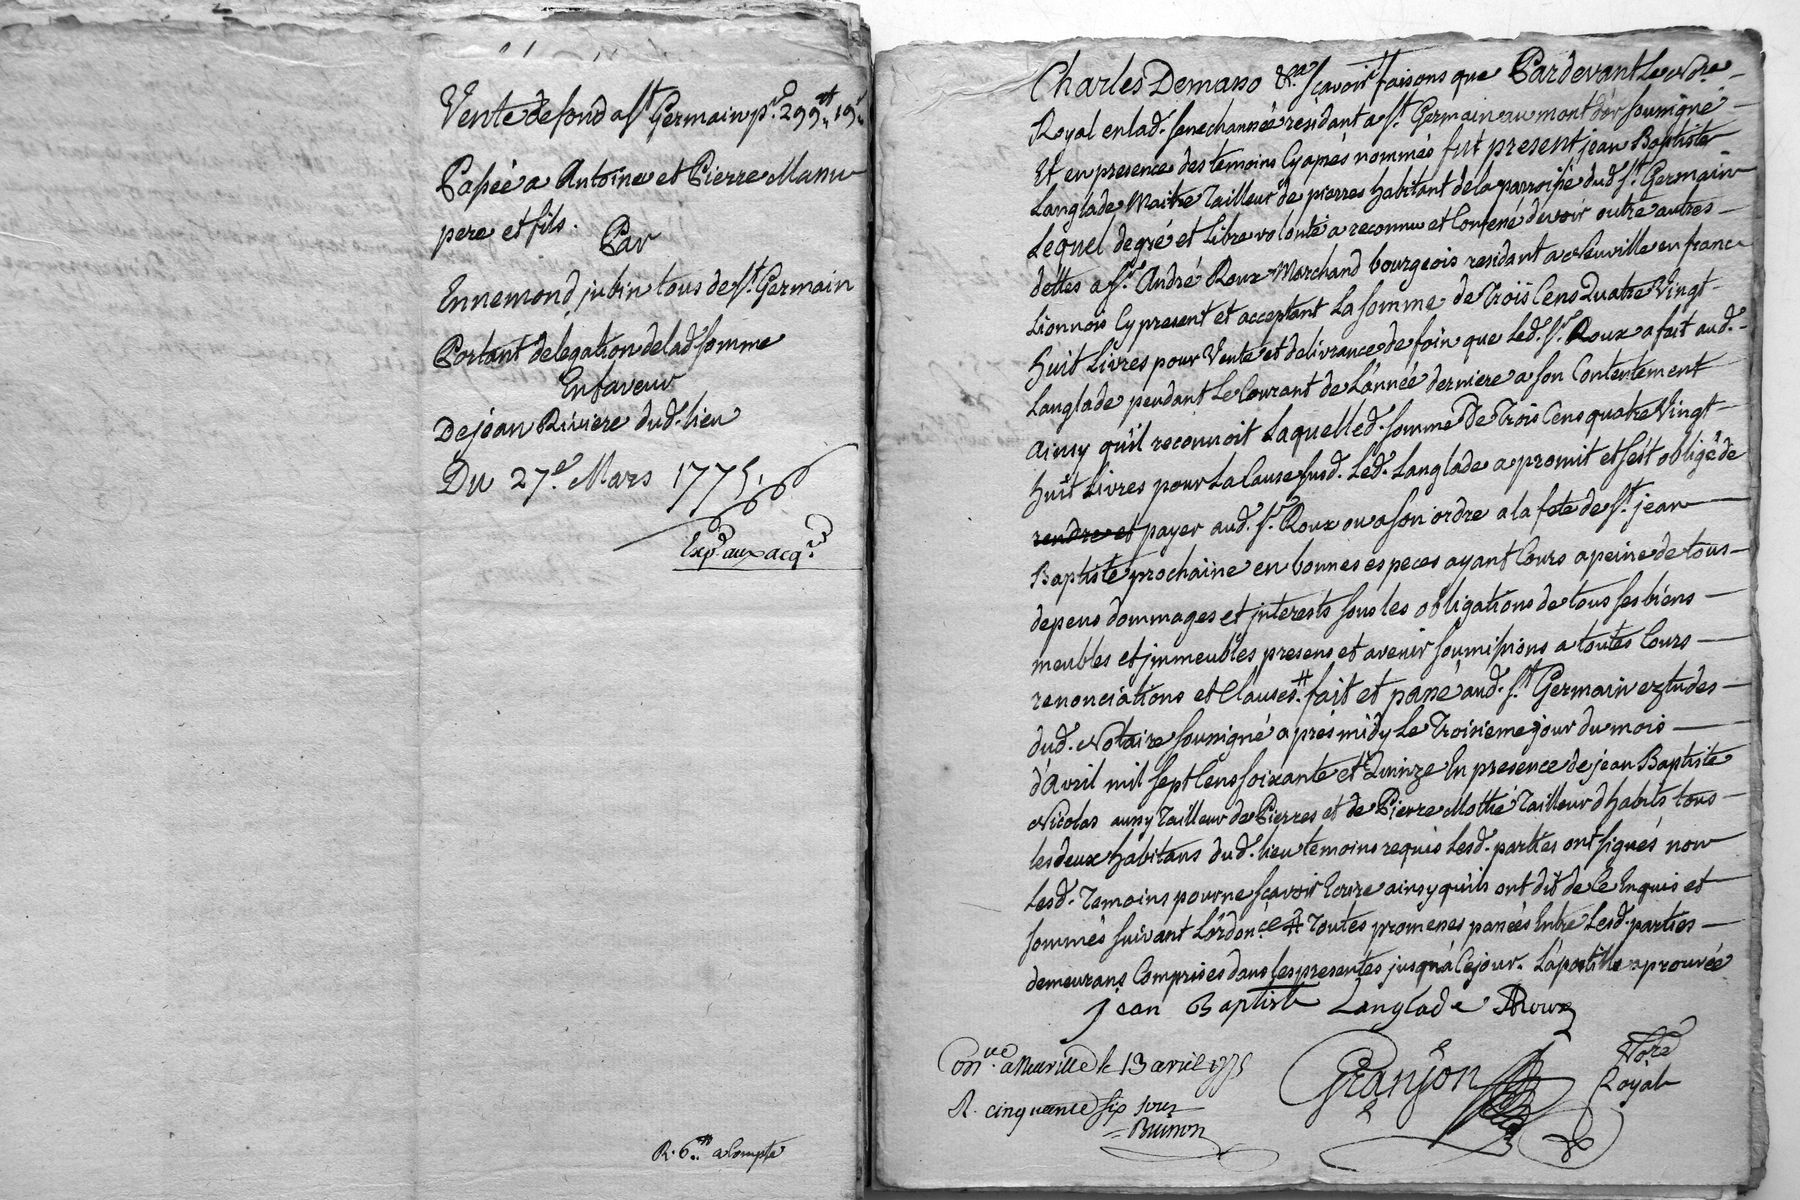 Vente de fond a St. Germain pr. 299tt 19s
Passée a Antoine et Pierre Manu
pere et fils.
Par
Ennemond jubin tous de St. Germain
Portant delegation de lad. somme
En faveur
De jean Riviere dud. lieu
Du 27e. Mars 1775.
Exp.d aux acq.rs
R. 6tt. acompte
Charles Demaso &ca. sçavoir faisons que Pardevant Le No.re
Royal en lad. senechaussée residant a St. Germain au mont d'or sousigné
Et en presence des temoins Cy aprés nommés fut present jean Baptiste
Langlade Maitre Tailleur de pierres habitant de la parroisse dud. St. Germain
Lequel de gré et Libre volonté a reconnu et Confessé devoir outre autres
dettes a Sr. André Roux Marchand bourgeois residant a Neuville en franc
Lionnois Cy present et acceptant La somme de Trois Cens Quatre Vingt
huit Livres pour Vente et delivrance de foin que led. Sr. Roux a fait aud.
Langlade pendant Le Courant de L'année derniere a son Contentement
ainsy qu'il reconnoit Laquelle d. somme De Trois Cens quatre Vingt
huit Livres pour La Cause susd. Led. Langlade a promit et s'est obligé de
rendre et payer aud. Sr. Roux ou a son ordre a la fete de St. jean
Baptiste prochaine en bonnes especes ayant Cours a peine de tous
depens dommages et interests sous les obligations de tous ses biens
meubles et immeubles presens et avenir soumissions a toutes Cours
renonciations et Clauses. # fait et passé aud. St. Germain eztudes
dud. Notaire sousigné aprés midy Le Troisieme jour du mois
d'avril mil sept Cens soixante et Quinze En presence de jean Baptiste
Nicolas auny Tailleur de Pierres et de Pierre Mottié Tailleur d'habits tous
les deux habitans dud. lieu temoins requis Lesd. parties ont signés non
Lesd. Temoins pour ne sçavoir Ecrire ainsy qu'ils ont dit de Ce Enquis et
sommés suivant L'ordon.ce # Toutes promesses passées Entre Lesd. parties
demeurans Comprises dans les presentes jusqu'a Ce jour. L'apostille aprouvée
jean Baptiste Langlade ARoux
Con.lle a Neuville le 13 avril 1775
R. cinquante six sous
Buisson
Granjon
No.re
Royal